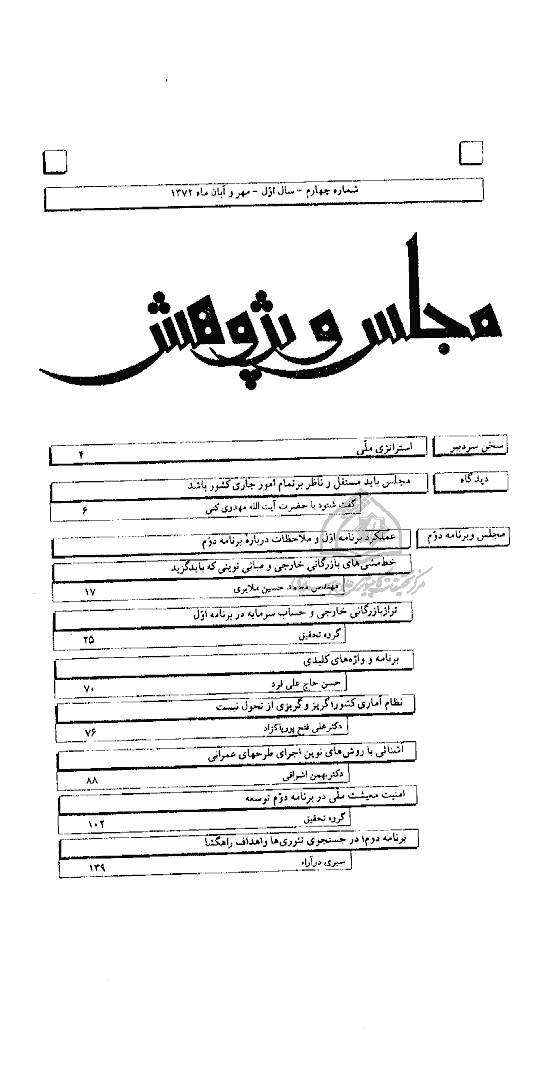 شماره چهارم - سال اوّل - مهر و آبان ماه ۱۳۷۲
مجلس و پژوهش
سخن سردبیر
استراتژی ملّی
۴
دیدگاه
مجلس باید مستقل و ناظر برتمام امور جاری کشور باشد
گفت شنود با حضرت آیت الله مهدوی کنی
۶
مجلس وبرنامه دوّم
عملکرد برنامه اوّل و ملاحظات درباره برنامه دوّم
خط‌مشی‌های بازرگانی خارجی و مبانی نوینی که بایدگزید
مهندس محمد حسین ملایری
۱۷
ترازبازرگانی خارجی و حساب سرمایه در برنامه اوّل
گروه تحقیق
۲۵
برنامه و واژه‌های کلیدی
حسن حاج علی فرد
۷۰
نظام آماری کشور؛ گریز و گریزی از تحول نیست
دکترعلی فتح
۷۶
آشنائی با روش‌های نوین اجرای طرحهای عمرانی
دکتربهمن اشراقی
۸۸
امنیت معیشت ملّی در برنامه دوّم توسعه
گروه تحقیق
۱۰۲
برنامه دوم؛ در جستجوی تئوری‌ها واهداف راهگشا
سیری درآراء
۱۳۹